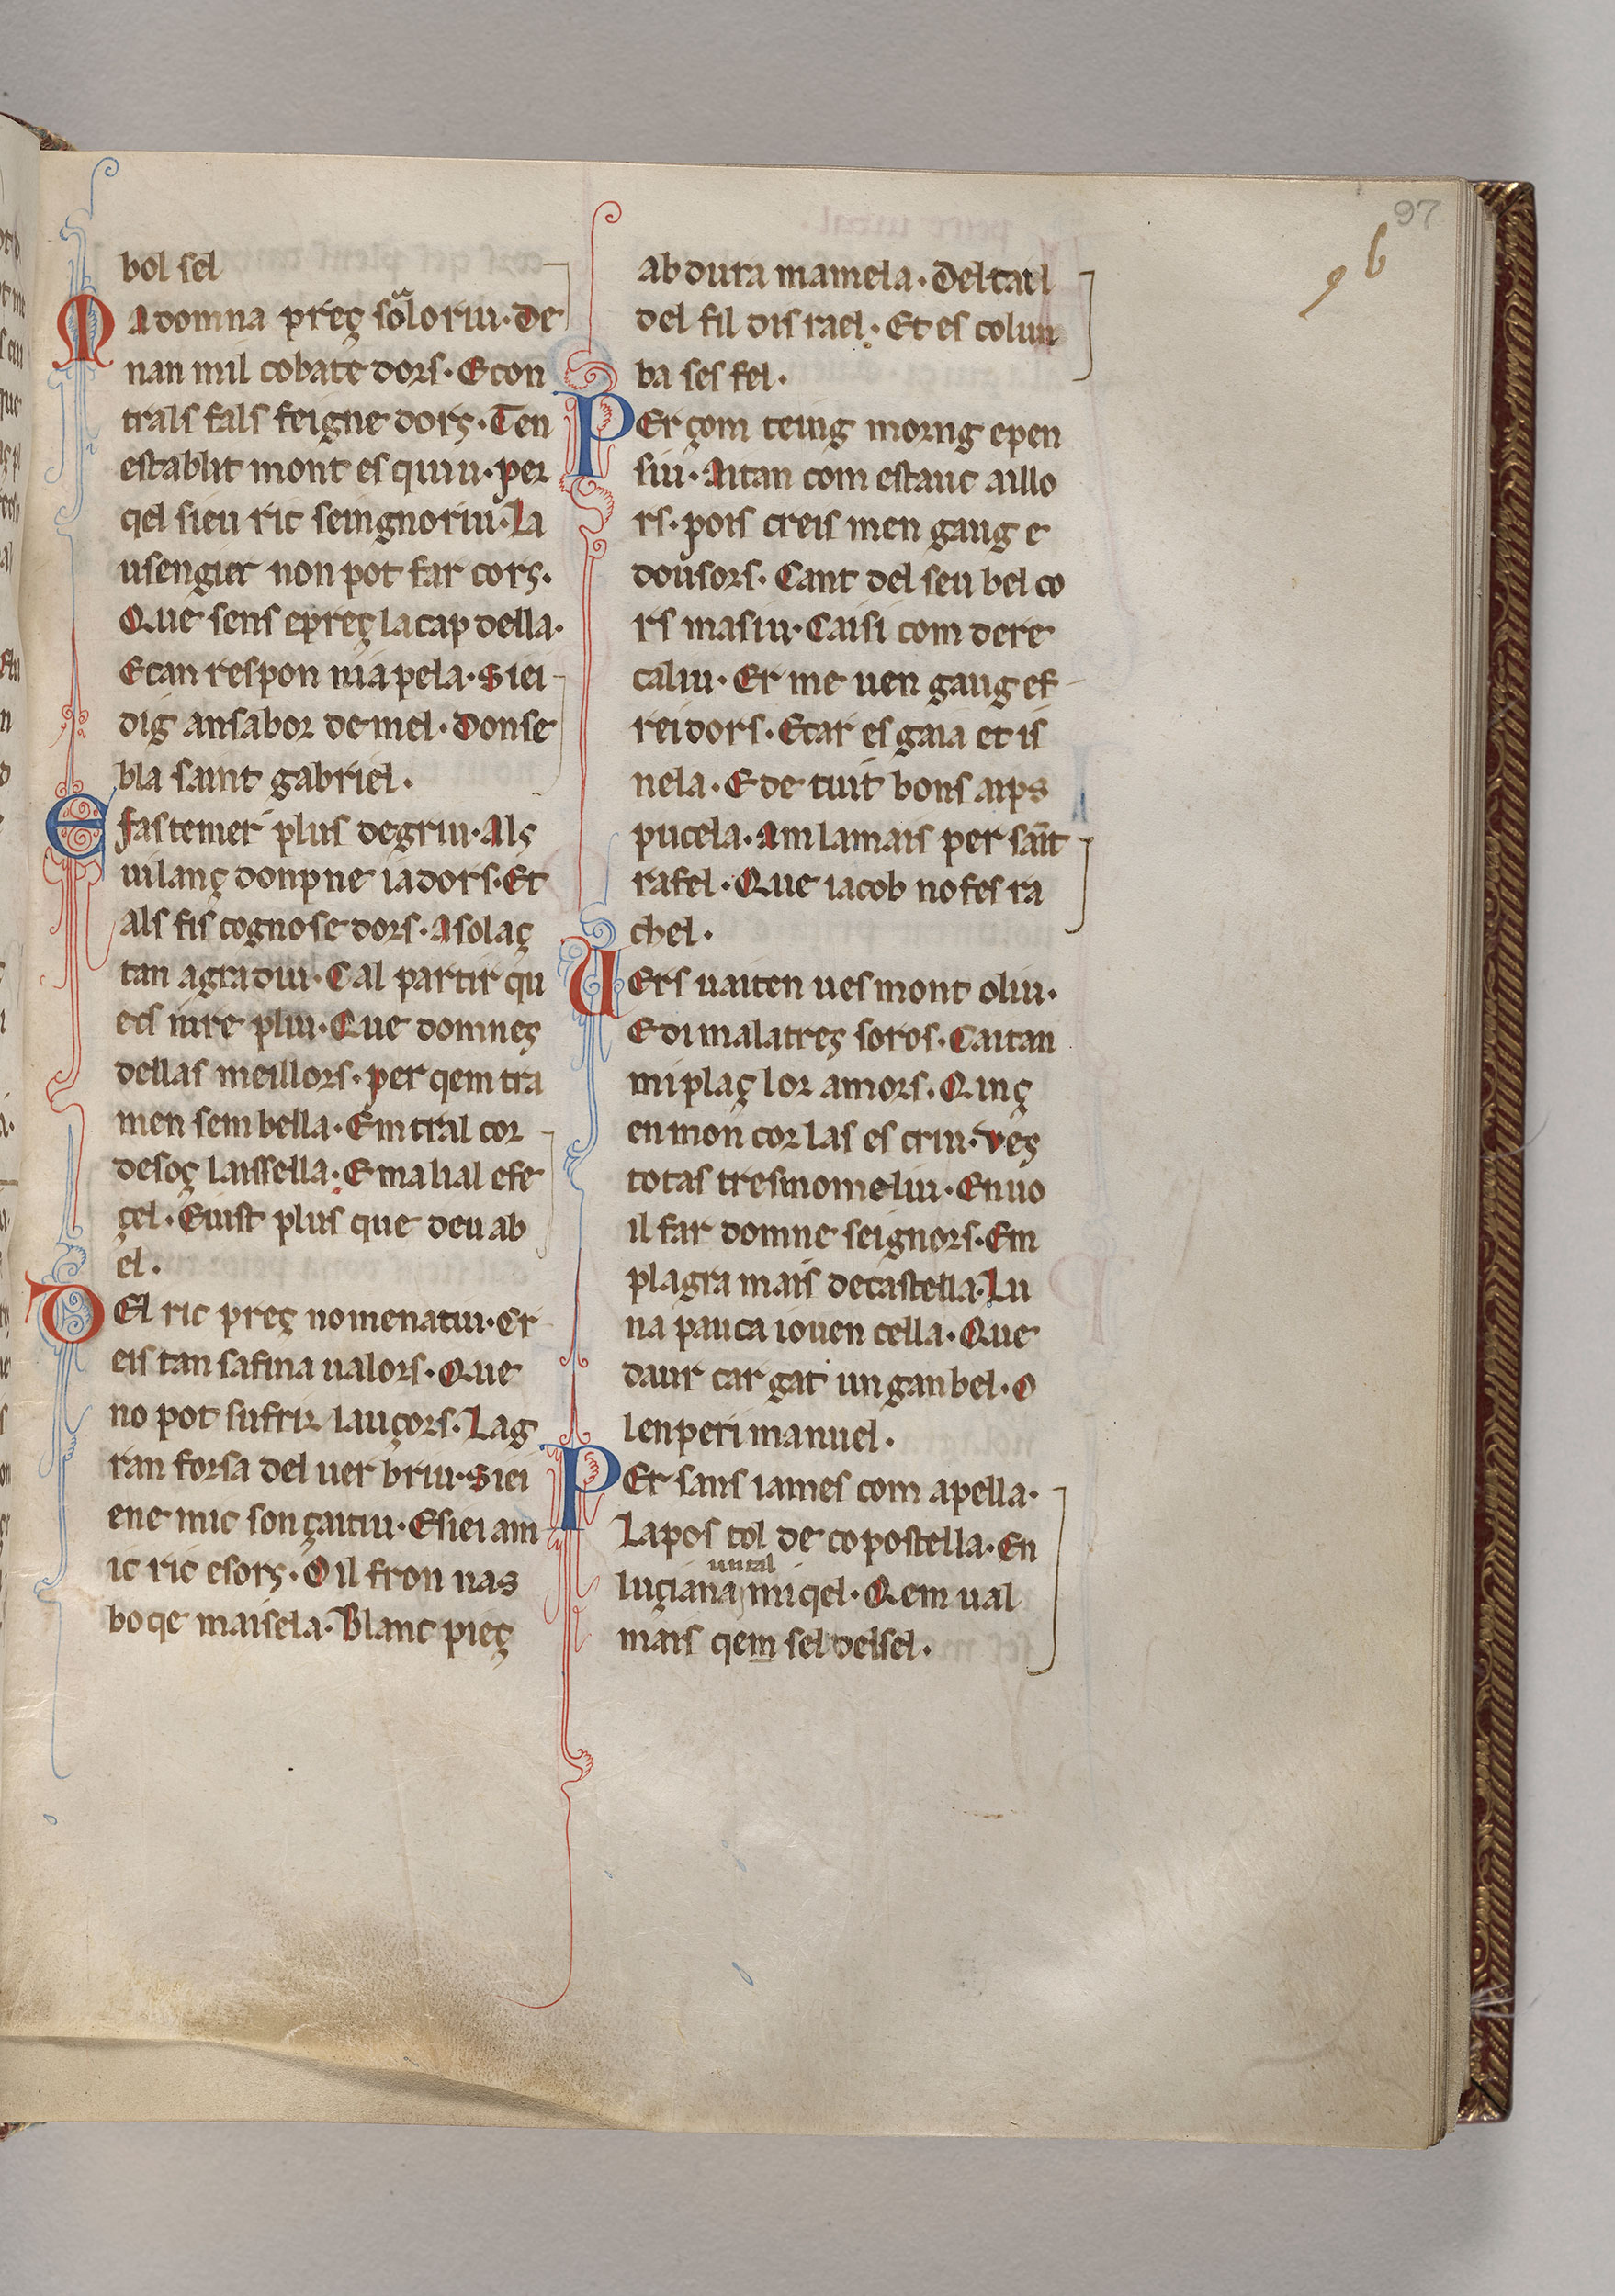 97
96
bol sel
MAdomna preç soͣl oriu · De
nan mil cobate dors · E con
trals fals feigne dorς · Ten
establit mont es quiu · per
qel sieu ric seingnoriu · La
usengier non pot far cors ·
Que sens epreç lacap della ·
E can respon ni apela · Siei
dig an sabor de mel · Don se
bla saint gabriel ·
E fas temer plus degriu · Als
uilanç donpne iadors · Et
als fis cognose dors · Asolaç
tan agradiu · Cal partir qu
ecs nire pliu · Que domneç
dellas meillors · per qem tra
men sembella · Em tral cor
desoç laissella · E ma lial efe
çel · Eiust plus que deu ab
el ·
DEl ric preç nomenatiu · Er
eis tan sa fina ualors · Que
no pot sufrir lauçors · Lag
ran forsa del uer briu · Siei
enemic son çaitiu · Esiei am
ic ric esors · Oil fron nas
boqe maisela · Blanc pieç
ab dura mamela · Del tail
del fil dis rael · Et es colun
ba ses fel ·
PEr çom teing morng epen
siu · Aitan com estauc aillo
rs · pois creis men gaug e
dousors · Cant del seu bel co
rs masiu · Caisi com dere
caliu · Er me uen gaug ef
reidors · E car es gaia et is
nela · E de tuit bons aips
pucela · Am lamais per sant
rafel · Que iacob no fes ra
chel ·
UErs uaiten ues mont oliu ·
E di malatreç soros · Caitan
mi plaç lor amors · Qinç
en mon cor las es criu · Veç
totas tres mom eliu · En uo
il far domne seignors · Em
plagra mais de castella · Lu
na pauca iouen cella · Que
daur cargat un ganbel · O
lenperi manuel ·
PEr sans iames com apella ·
Lapos tol de copostella · En
uiral
luçiana miqel · Qem ual
mais qem sel delsel ·